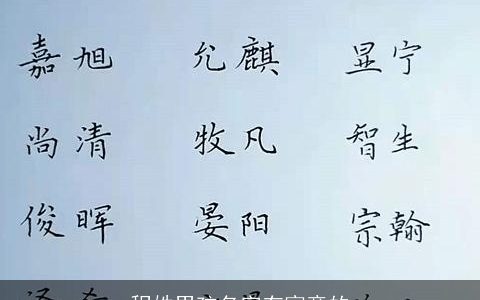 嘉旭 允麒 昱宁
尚清 牧凡 智生
俊晖 晏阳 宗翰
程姓男孩名字有寓意的